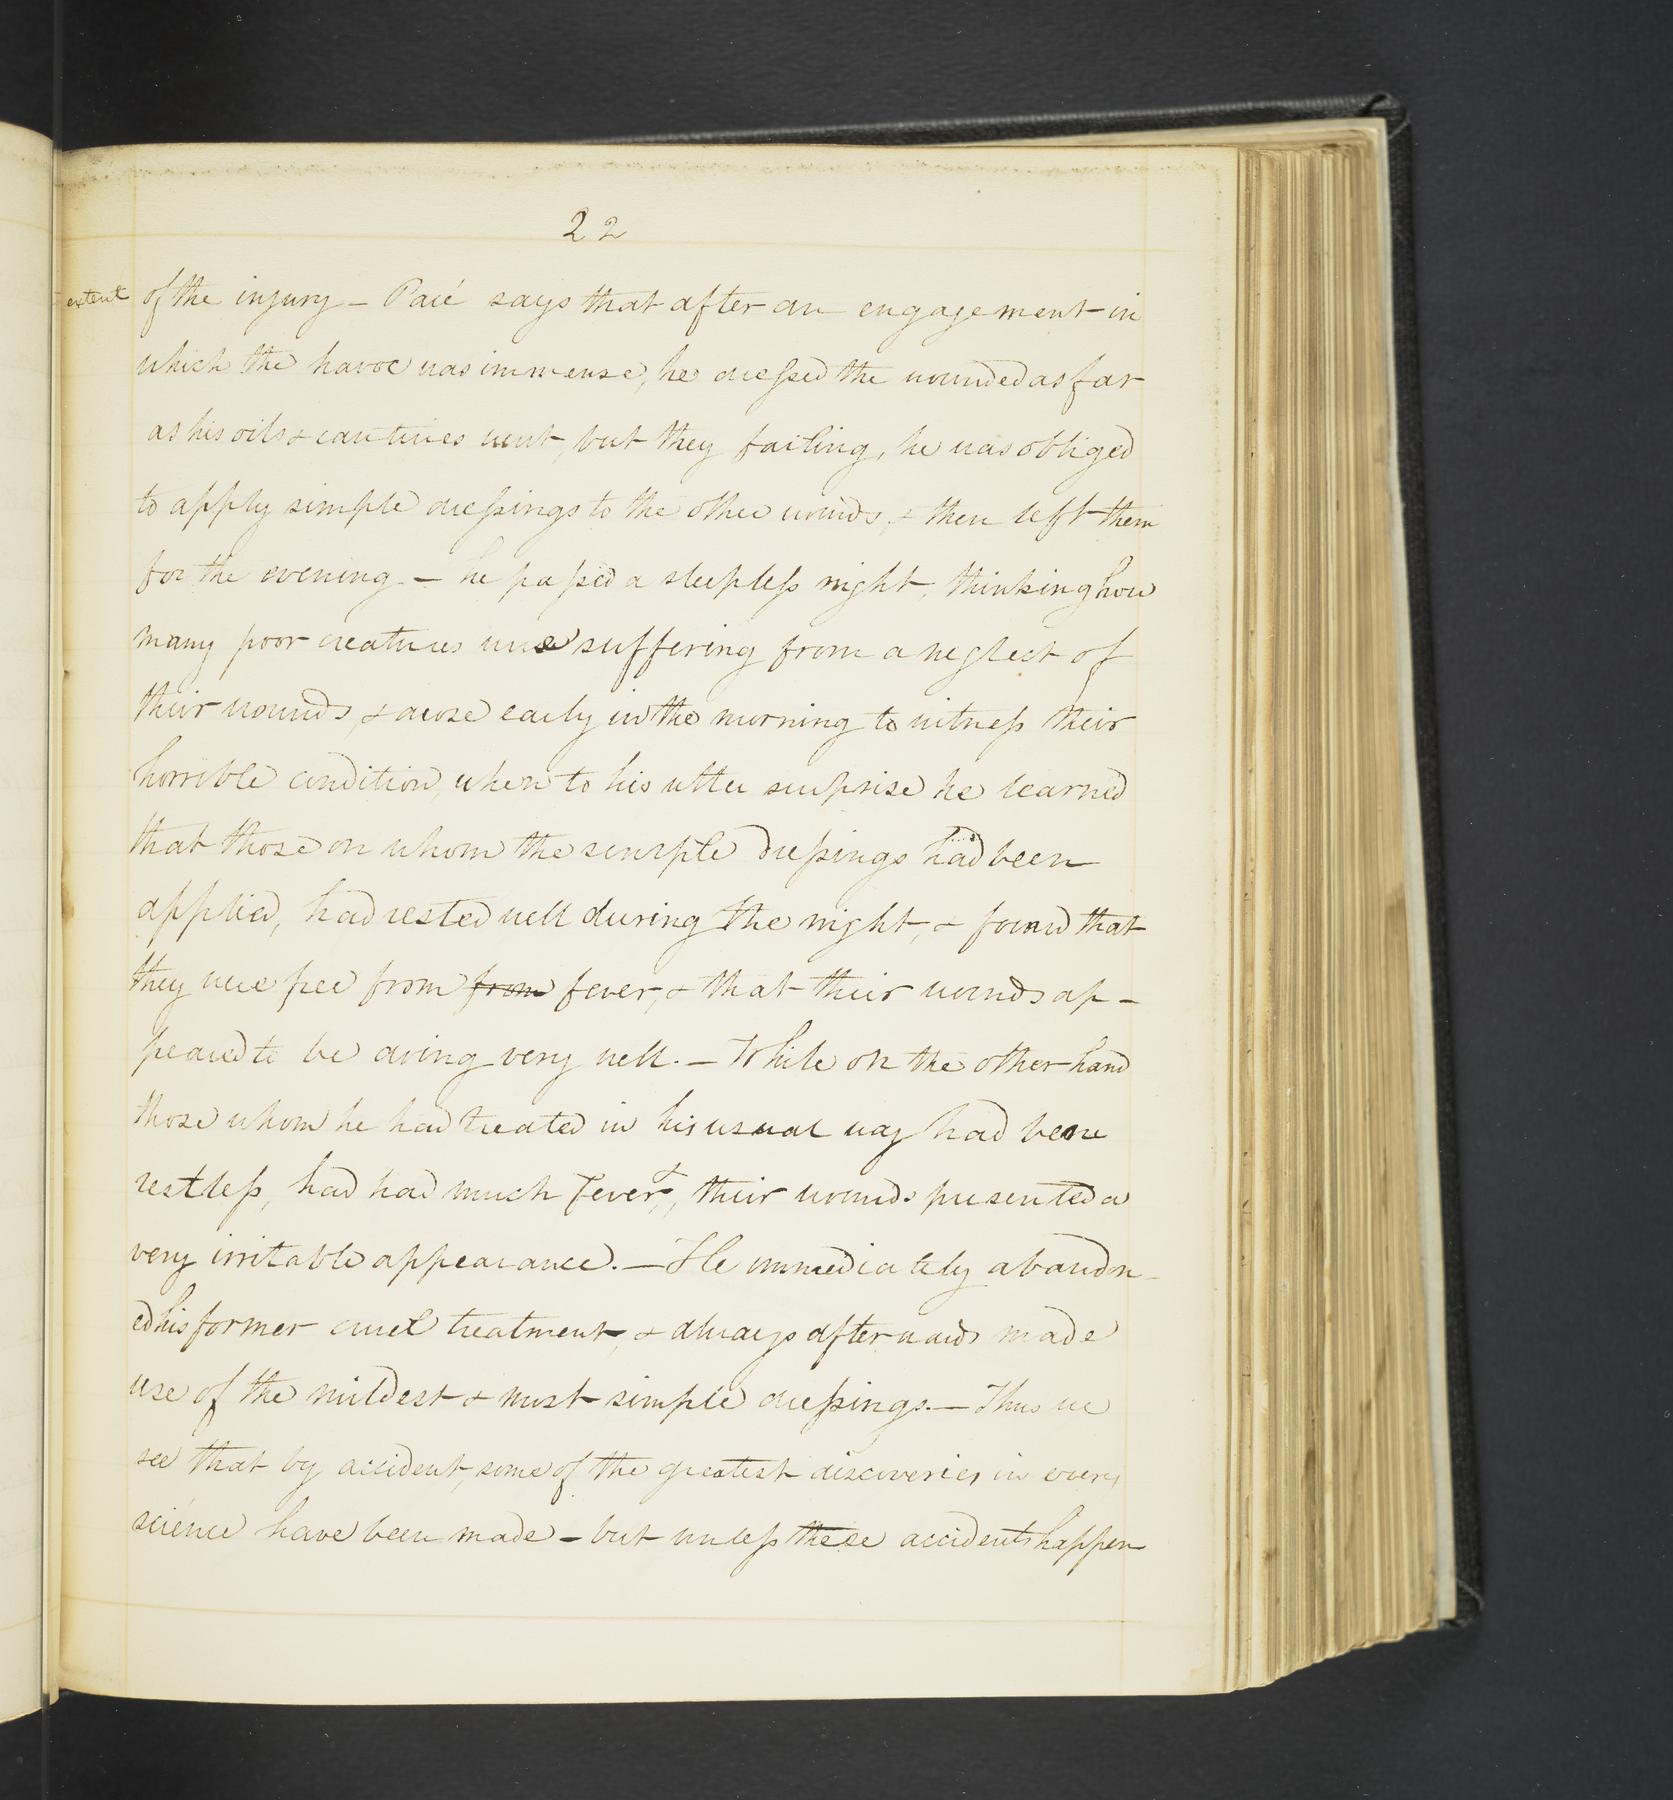 22
extent of the injury - Paré says that after an engagement in
which the havoc was immense, he dressed the wounded as far
as his oils & cauteries went, but they failing, he was obliged
to apply simple dressings to the other wounds, & then left them
for the evening - he passed a sleepless night, thinking how
many poor creatures were suffering from a neglect of
their wounds, & arose early in the morning to witness their
horrible condition, when to his utter surprise he learned
that those on whom the simple dressings had been
applied, had rested well during the night, & found that
they were free from from fever, & that their wounds ap-
peared to be doing very well. - While on the other hand
those whom he had treated in his usual way had been
restless, had had much fever, & their wounds presented a
very irritable appearance. - He immediately abandon-
ed his former cruel treatment, & always afterwards made
use of the mildest & most simple dressings. - Thus we
see that by accident, some of the greatest discoveries in every
science have been made - but unless these accidents happen